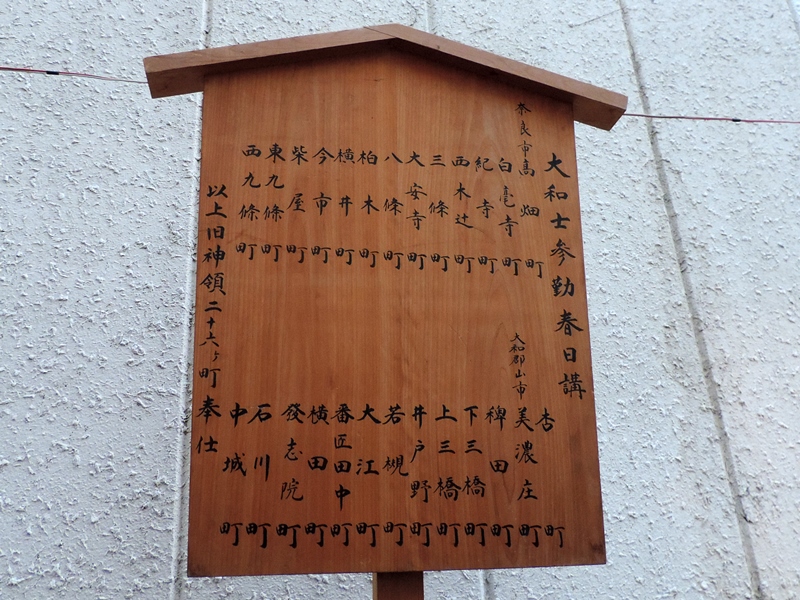 大和士参勤春日講
奈良市高畑町
白毫寺町
紀寺町
西木辻町
三條町
大安寺町
八條町
柏木町
横井町
今市町
柴屋町
東九條町
西九條町
杏町
大和郡山市美濃庄町
稗田町
下三橋町
上三橋町
井戸野町
若槻町
大江町
番匠田中町
横田町
發志院町
石川町
中城町
以上旧神領二十六ヶ町奉仕